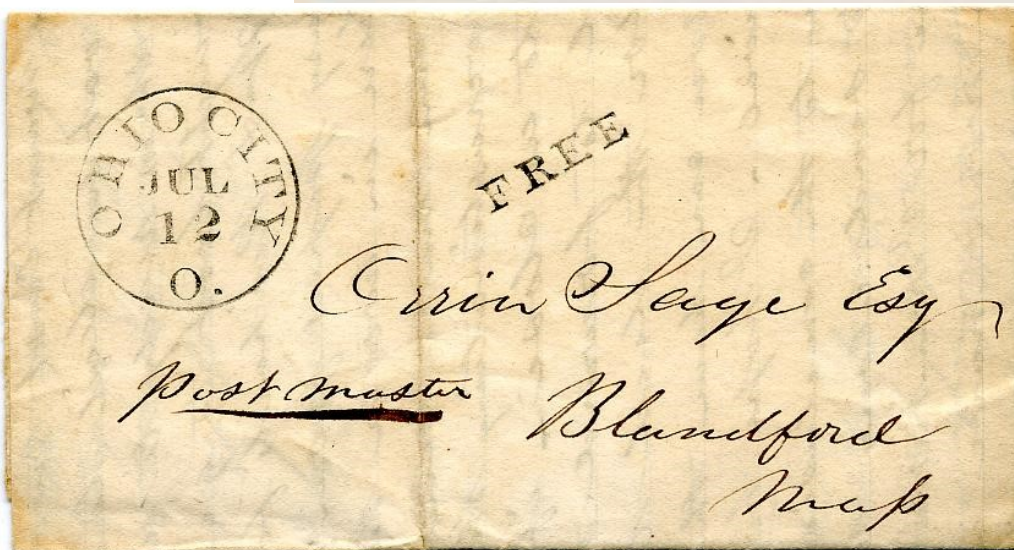 OHIO CITY
JUL
12
O.
FREE
Orrin Sage Esq
Post Master
Blandford
Mass